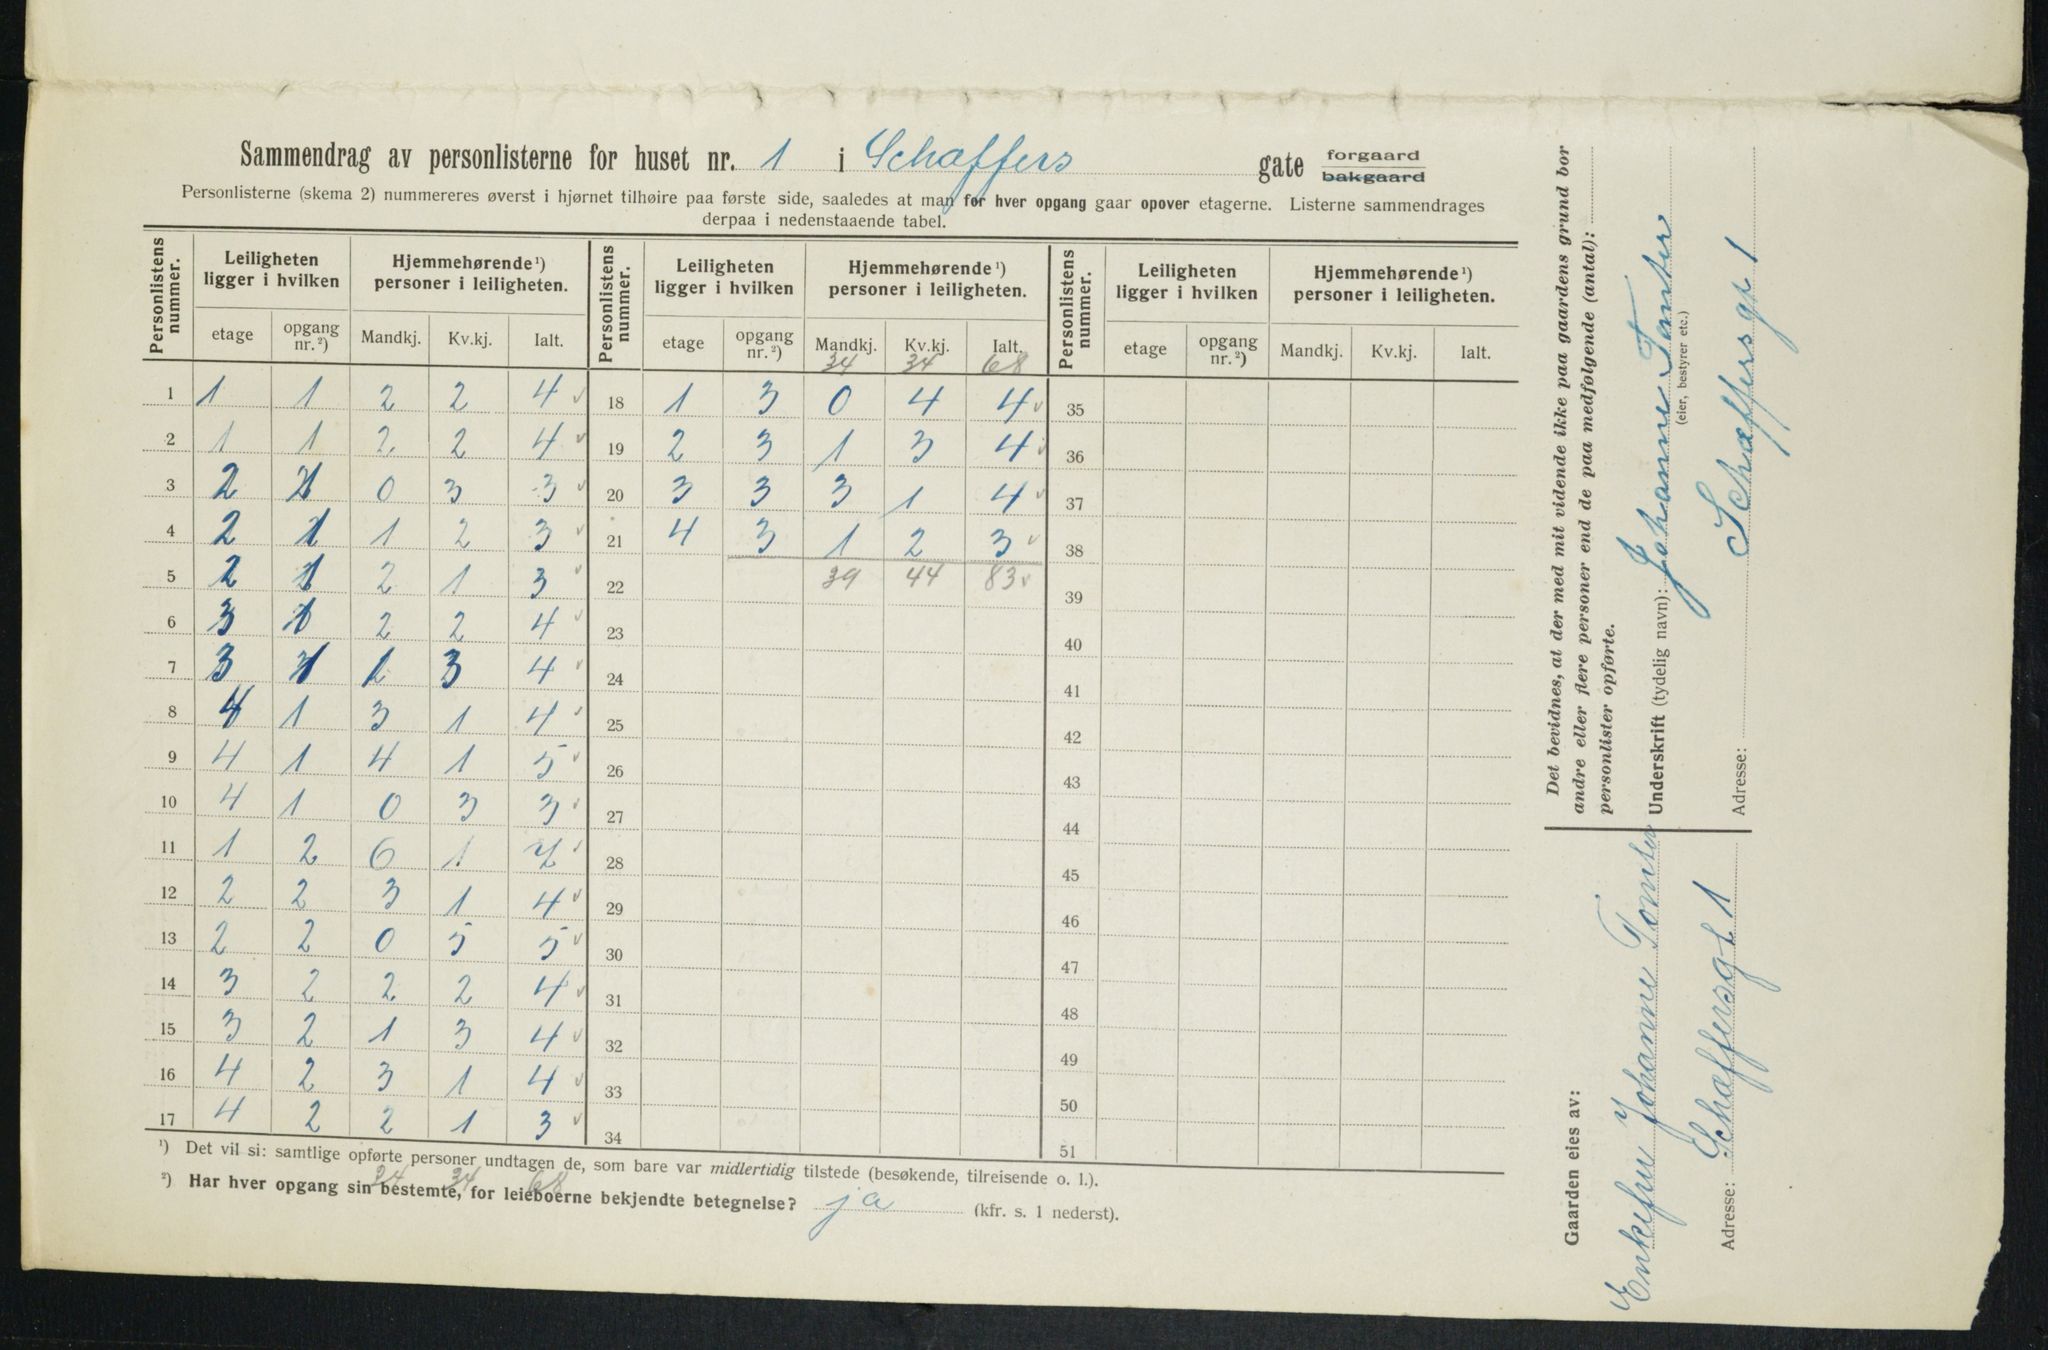 Sammendrag av personlisterne for huset nr. 1 i Schæffers gate forgaard bakgaard
Personlisterne (skema 2) nummereres øverst i hjørnet tilhøire paa første side, saaledes at man for hver opgang gaar opover etagerne. Listerne sammendrages
derpaa i nedenstaaende tabel.
Personlistens nummer. Leiligheten ligger i hvilken Hjemmehørende ¹) personer i leiligheten. Personlistens nummer. Leiligheten ligger i hvilken Hjemmehørende ¹) personer i leiligheten. Personlistens nummer. Leiligheten ligger i hvilken Hjemmehørende ¹) personer i leiligheten.
etage opgang nr. ²) Mandkj. Kv.kj. Ialt. etage opgang nr. ²) Mandkj. Kv.kj. Ialt. etage opgang nr. ²) Mandkj. Kv.kj. Ialt.
34 34 68
1 1 1 2 2 4 18 1 3 0 4 4 35
2 1 1 2 2 4 19 2 3 1 3 4 36
3 2 1 0 3 3 20 3 3 3 1 4 37
4 2 1 1 2 3 21 4 3 1 2 3 38
5 2 1 2 1 3 22 39 44 83 39
6 3 1 2 2 4 23 40
7 3 1 1 3 4 24 41
8 4 1 3 1 4 25 42
9 4 1 4 1 5 26 43
10 4 1 0 3 3 27 44
11 1 2 6 1 7 28 45
12 2 2 3 1 4 29 46
13 2 2 0 5 5 30 47
14 3 2 2 2 4 31 48
15 3 2 1 3 4 32 49
16 4 2 3 1 4 33 50
17 4 2 2 1 3 34 51
¹) Det vil si: samtlige opførte personer undtagen de, som bare var midlertidig tilstede (besøkende, tilreisende o. l.).
34 34 68
²) Har hver opgang sin bestemte, for leieboerne bekjendte betegnelse? ja (kfr. s. 1 nederst).
Det bevidnes, at der med mit vidende ikke paa gaardens grund bor
andre eller flere personer end de paa medfølgende (antal):
personlister opførte.
Underskrift (tydelig navn): Johanne Tomter
(eier, bestyrer etc.)
Adresse: Schæffersgt 1
Gaarden eies av:
Enkefru Johanne Tomter
Adresse: Schæffersgt 1